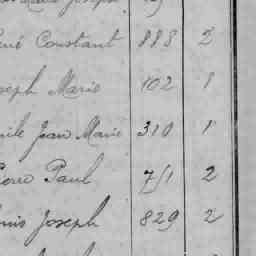 Joseph
René Constant 888 2
Joseph Marie 102 1
Emile Jean Marie 310 1
Pierre Paul 751 2
Louis Joseph 829 2